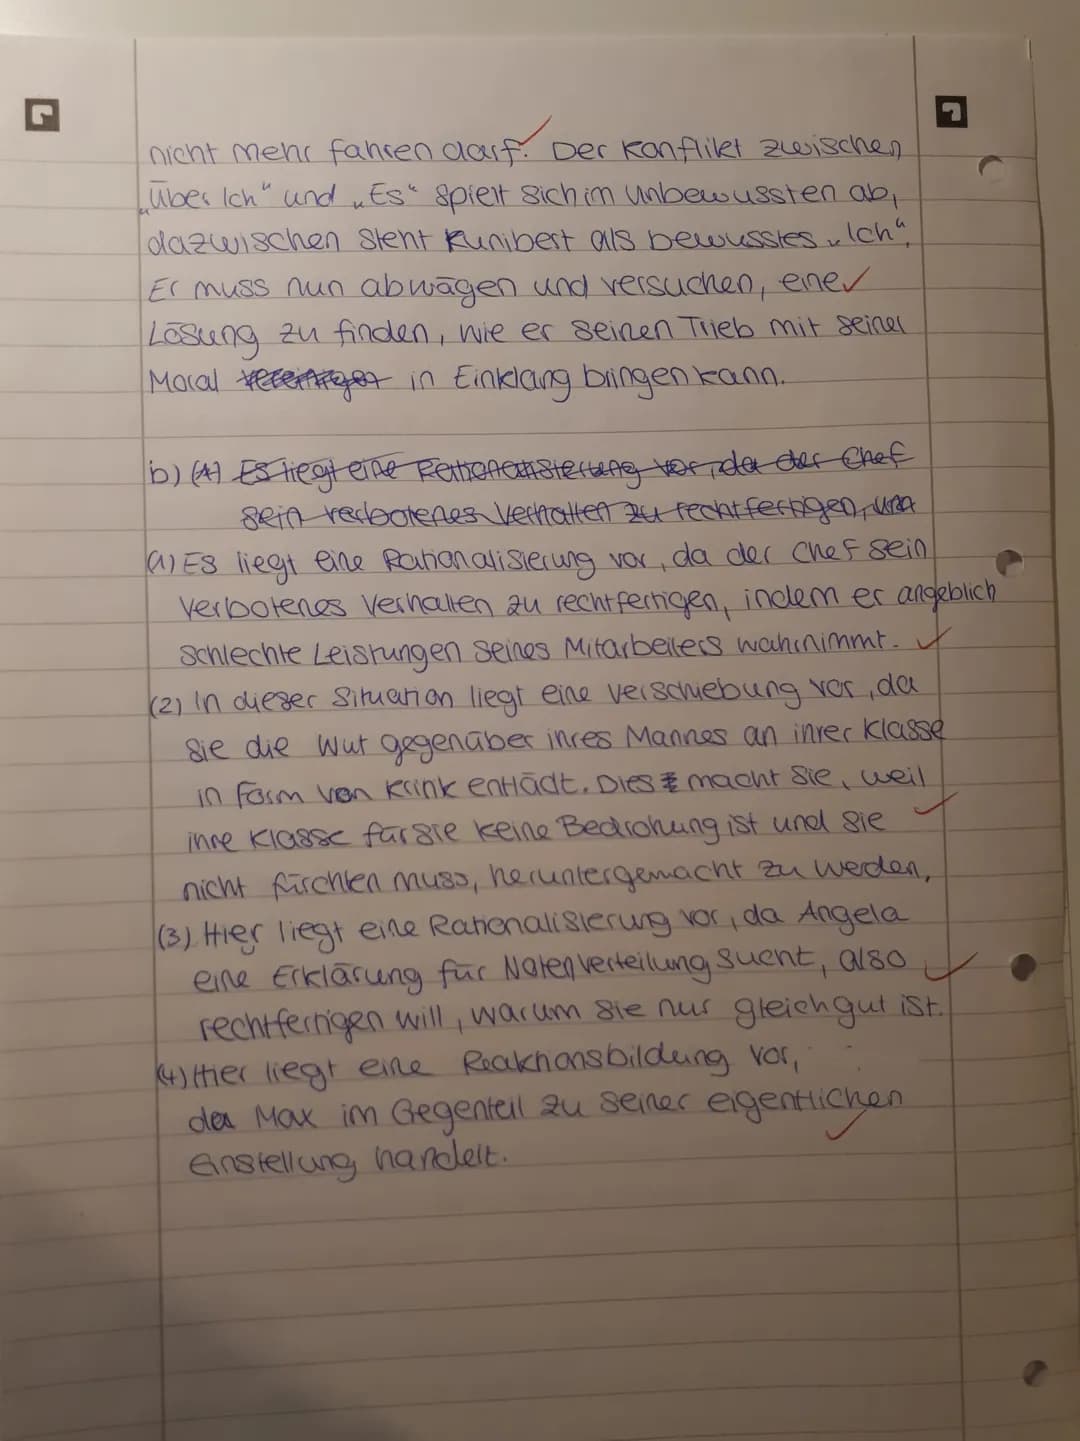 nicht mehr fahren darf. Der Konflikt zwischen
„Über Ich" und „Es" spielt sich im Unbewussten ab,
dazwischen steht Kunibert als bewusstes „Ich".
Er muss nun abwägen und versuchen, eine
Lösung zu finden, wie er seinen Trieb mit seiner
Moral in Einklang bringen kann.
b) (1) Es liegt eine Rationalisierung vor, da der Chef
sein verbotenes Verhalten zu rechtfertigen, und
(1) Es liegt eine Rationalisierung vor, da der Chef sein
verbotenes Verhalten zu rechtfertigen, indem er angeblich
schlechte Leistungen seines Mitarbeiters wahrnimmt.
(2) In dieser Situation liegt eine Verschiebung vor, da
sie die Wut gegenüber ihres Mannes an ihrer Klasse
in Form von Kritik entlädt. Dies macht sie, weil
ihre Klasse für sie keine Bedrohung ist und sie
nicht fürchten muss, heruntergemacht zu werden,
(3) Hier liegt eine Rationalisierung vor, da Angela
eine Erklärung für Notenverteilung sucht, also
rechtfertigen will, warum sie nur gleich gut ist.
(4) Hier liegt eine Reaktionsbildung vor,
da Max im Gegenteil zu seiner eigentlichen
Einstellung handelt.